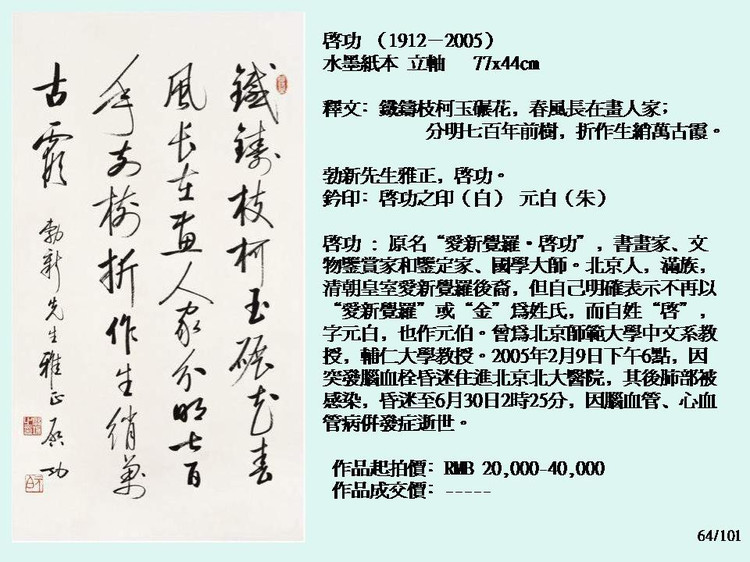 鐵鑄枝柯玉碾花春
風長在畫人家分明七百
年前樹折作生綃萬
古霞
勃新先生雅正 啓功
啓功 （1912－2005）
水墨紙本 立軸 77x44cm
釋文：鐵鑄枝柯玉碾花，春風長在畫人家；
分明七百年前樹，折作生綃萬古霞。
勃新先生雅正，啓功。
鈐印：啓功之印（白） 元白（朱）
啓功 ：原名“愛新覺羅·啓功”，書畫家、文
物鑒賞家和鑒定家、國學大師。北京人，滿族，
清朝皇室愛新覺羅後裔，但自己明確表示不再以
“愛新覺羅”或“金”爲姓氏，而自姓“啓”，
字元白，也作元伯。曾爲北京師範大學中文系教
授，輔仁大學教授。2005年2月9日下午6點，因
突發腦血栓昏迷住進北京北大醫院，其後肺部被
感染，昏迷至6月30日2時25分，因腦血管、心血
管病併發症逝世。
作品起拍價：RMB 20,000-40,000
作品成交價：-----
64/101